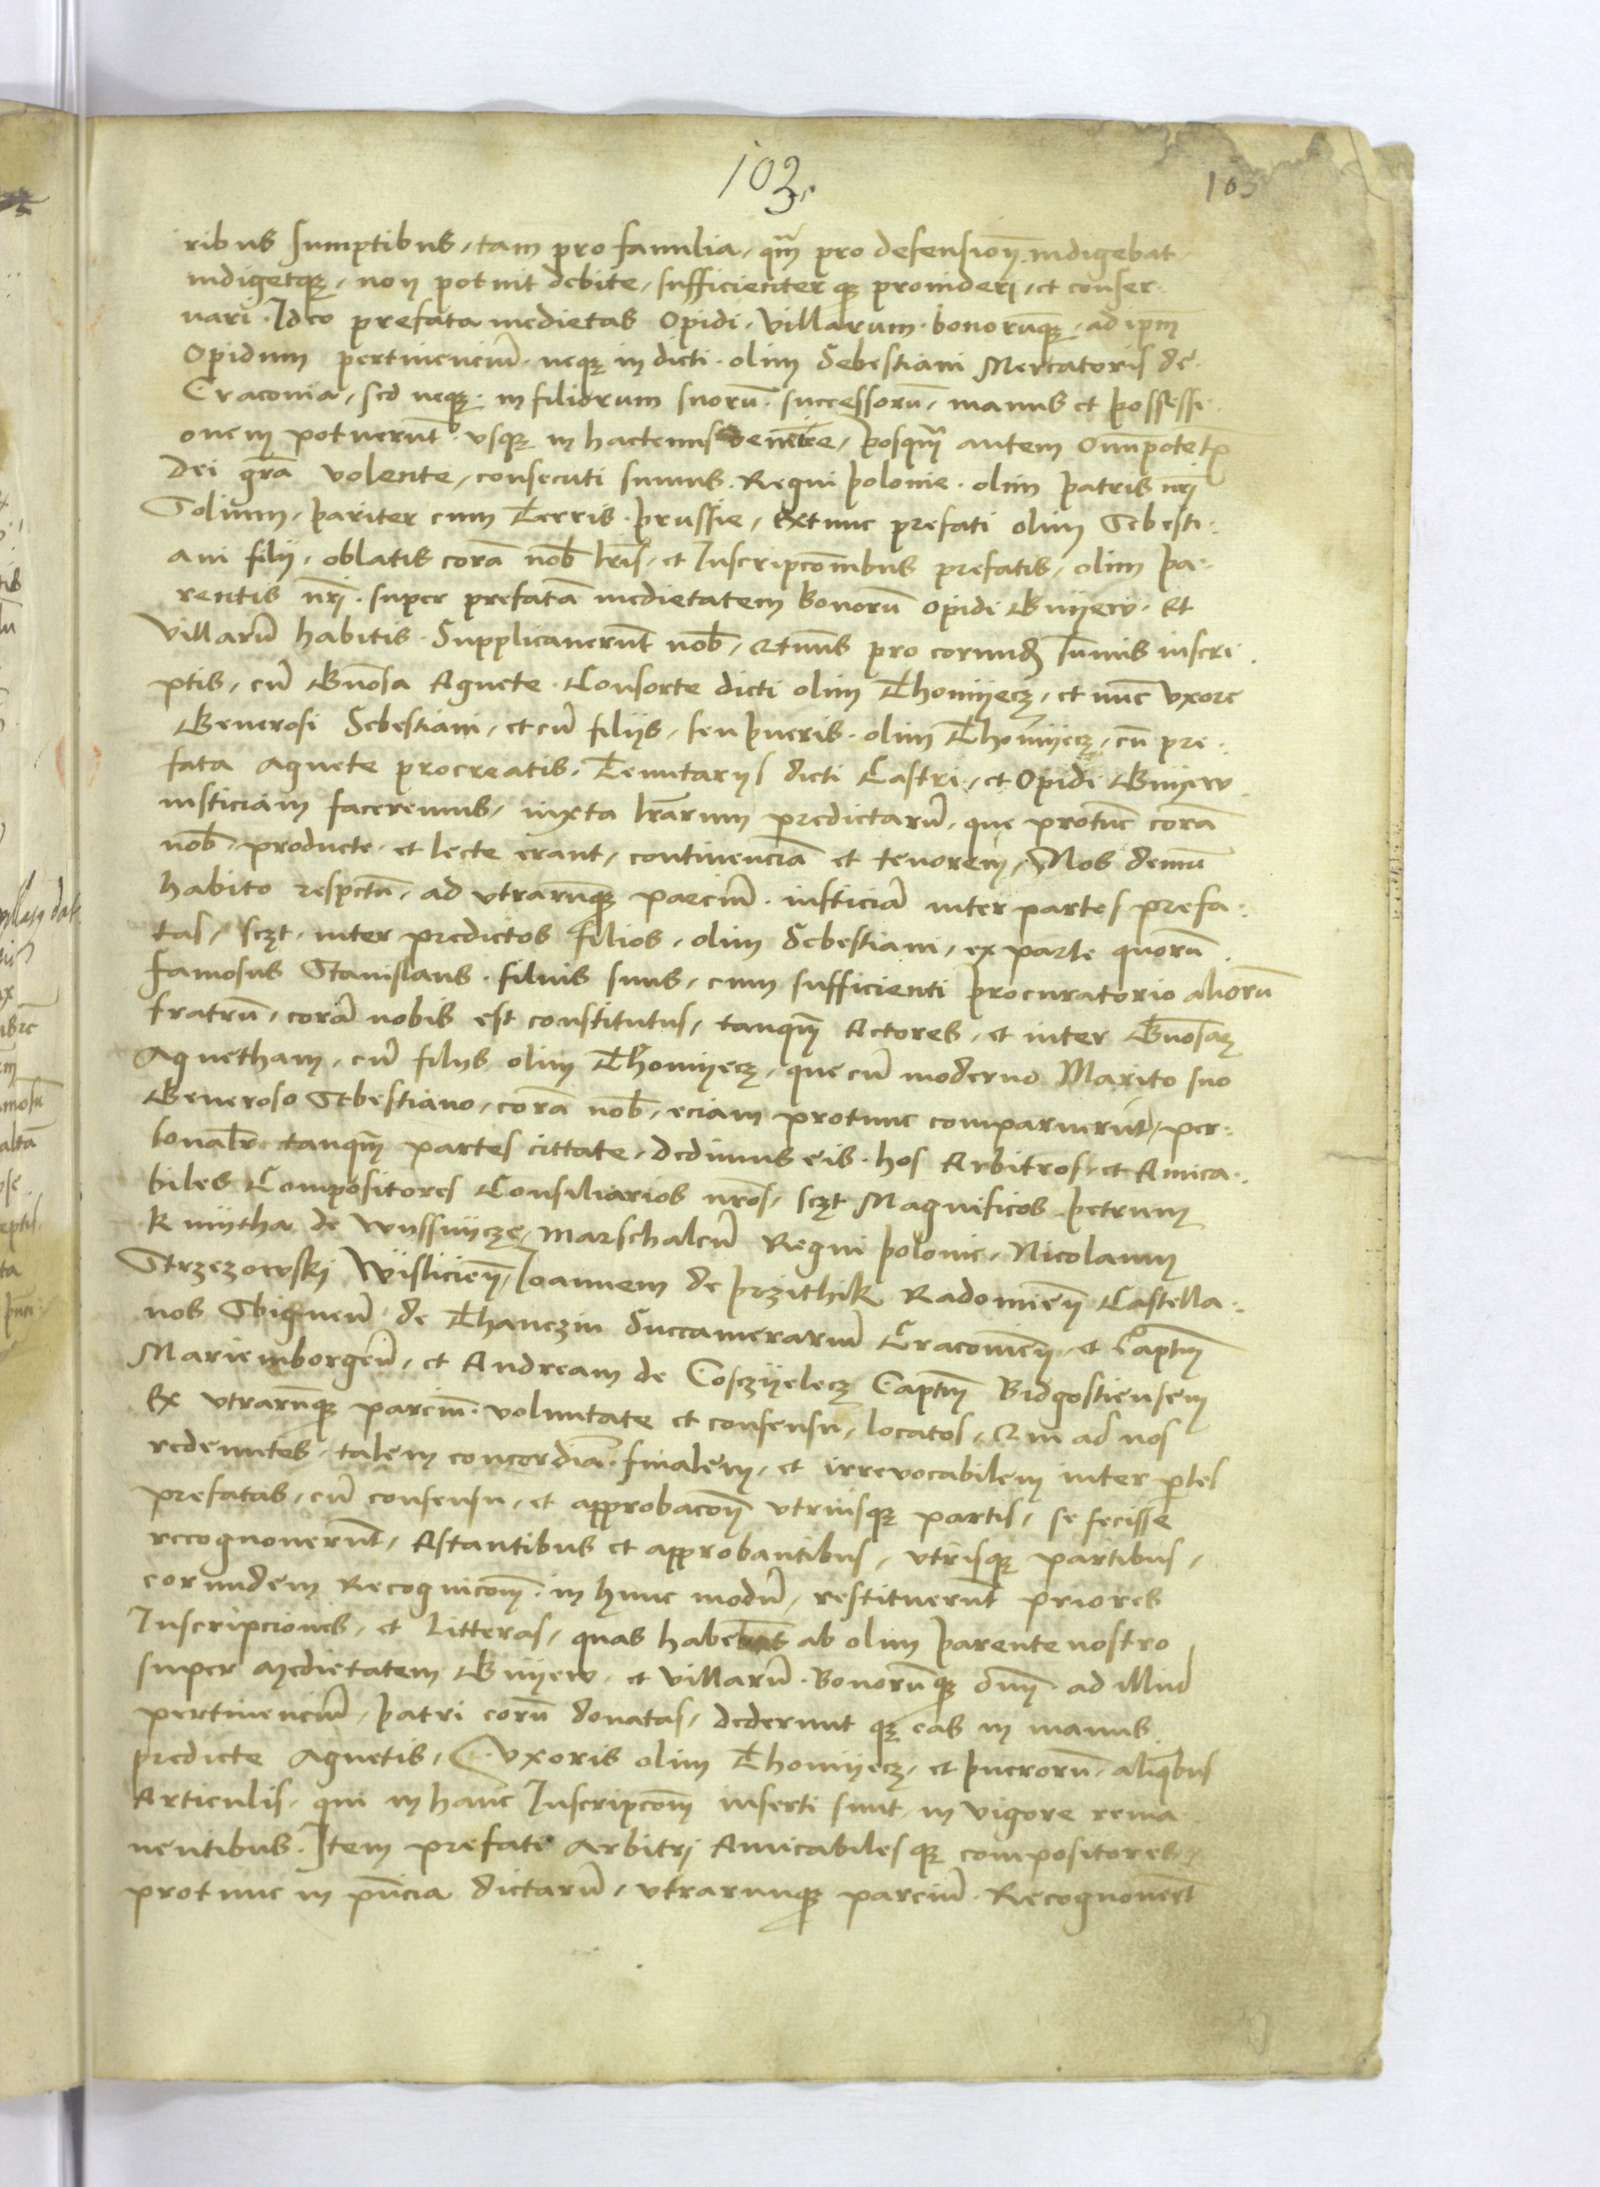 103
103
ribus sumptibus, tam pro familia, qm̄ pro defensioη indigebat
indigetqꝫ, non potuit debite, sufficienter qꝫ prouideri, et conser
uari. Ideo prefata medietas Opidi, Villarum, bonorūqꝫ, ad ipm̄
Opidum pertinenciū, neqꝫ in dicti olim Sebestiani Mercatoris de
Craconia, sed neqꝫ in filiorum suorū, successorū, manus et possessi
onem potuerunt, vsqꝫ in hactenus venire, posqm̄ autem
Dei grā volente, consecuti sumus Regni polonie olim patris nrī
Solium, pariter cum Terris prussie, Extunc prefati olim Sebesti
ani filij, oblatis corā nob̄ lrīs, et Inscripcōnibus prefatis, olim pa
rentis nrī, super prefatā medietatem bonorū opidi Gnyew, Et
Villarū habitis, Supplicauerūt nob̄, Qtenus pro eorundē sūmis inscri
ptis, cū Gnōsa Agnete Consorte dicti olim Thomyecz, et nūc vxore
Generosi Sebestiani, et cū filijs, seu pueris olim Thomyecz, cū pre
fata Agnete procreatis, Tenutarijs dicti Castri, et Opidi Gnyew
iusticiam faceremus, iuxta lrārum predictarū, que protūc corā
nob̄ producte et lecte erant, continenciā et tenorem, Nos demū
habito respectu, ad vtrarūqꝫ parciū iusticiā inter partes prefa
tas, sczt inter predictos filios olim Sebestiani, ex parte quorū
famosus Stanislaus filius suus, cum sufficienti procuratorio aliorū
fratrū, corā nobis est constitutus, tanqm̄ Actores, et inter Gnōsam
Agnetham, cū filijs olim Thomyecz, que cū moderno Marito suo
Generoso Sebestiano, corā nob̄, eciam protunc comparuerūt, per
tanqm̄ partes cittate, dedimus eis hos Arbitros, et Amica
biles Compositores Consiliarios nrōs, sczt Magnificos petrum
Kmytha de Wyssnycze, Marschalcū Regni polonie, Nicolaum
Strzezowski Wislicieη, Ioannem de przithik Radomieη Castella
nos Sbigneū de Thanczin Succamerariū Cracouieη, et Captm̄
Mariemborgeη, et Andream de Cosczyelecz Captm̄ Bidgostiensem
Ex vtrarūqꝫ parciū voluntate et consensu, locatos, Qui ad nos
redeuntes, talem concordiā finalem, et irrevocabilem inter ptes
prefatas, cū consensu, et approbacōη vtriusqꝫ partis, se fecisse
recognouerūt, Astantibus et approbantibus, vtrisqꝫ partibus,
eorundem Recognicōm in hunc modū, restituerūt priores
Inscripciones, et Litteras, quas habebāt ab olim parente nostro
super medietatem Gnyew, et Villarū, Bonorūqꝫ oīm ad illud
pertinenciū, patri eorū donatas, dederunt qꝫ eas in manus
predicte Agnetis, Vxoris olim Thomyecz, et puerorū, aliqbus
Articulis, qui in hanc Inscripcōm inserti sunt in vigore rema
nentibus. Item prefati Arbitri Amicabiles qꝫ compositores
protunc in pn̄cia dictarū, vtrarumqꝫ parciū Recognouerūt